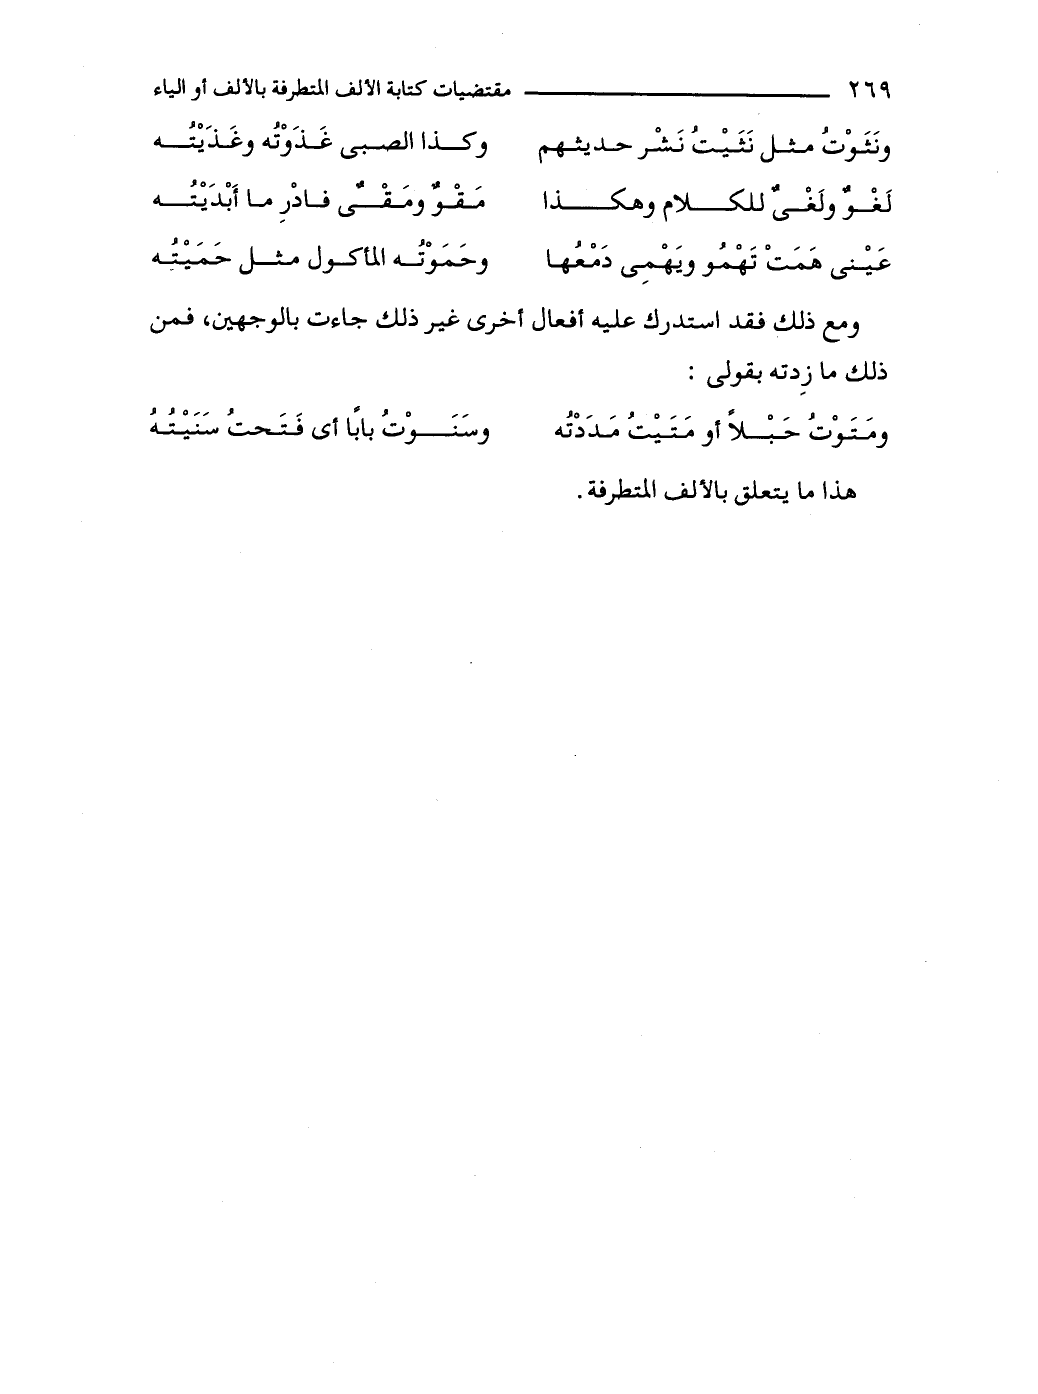 ٢٦٩ ــــــــــــــــ مقتضيات كتابة الألف المتطرفة بالألف أو الياء
ونَثَوْتُ مثل نَثَيْتُ نَشْر حديثهم وكذا الصبى غَذَوْتُه وغَذَيْتُه
لَغْوٌ ولَغْىٌ للكلام وهكذا مَقْوٌ ومَقْىٌ فادْرِ ما أبْدَيْتُه
عَيْنى هَمَتْ تَهْمُو ويَهْمِى دَمْعُها وحَمَوْتُه المأكول مثل حَمَيْتُه
ومع ذلك فقد استدرك عليه أفعال أخرى غير ذلك جاءت بالوجهين، فمن
ذلك ما زِدته بقولى :
ومَتَوْتُ حَبْلاً أو مَتَيْتُ مَدَدْتُه وسَنَوْتُ بابًا أى فَتَحتُ سَنَيْتُهُ
هذا ما يتعلق بالألف المتطرفة.